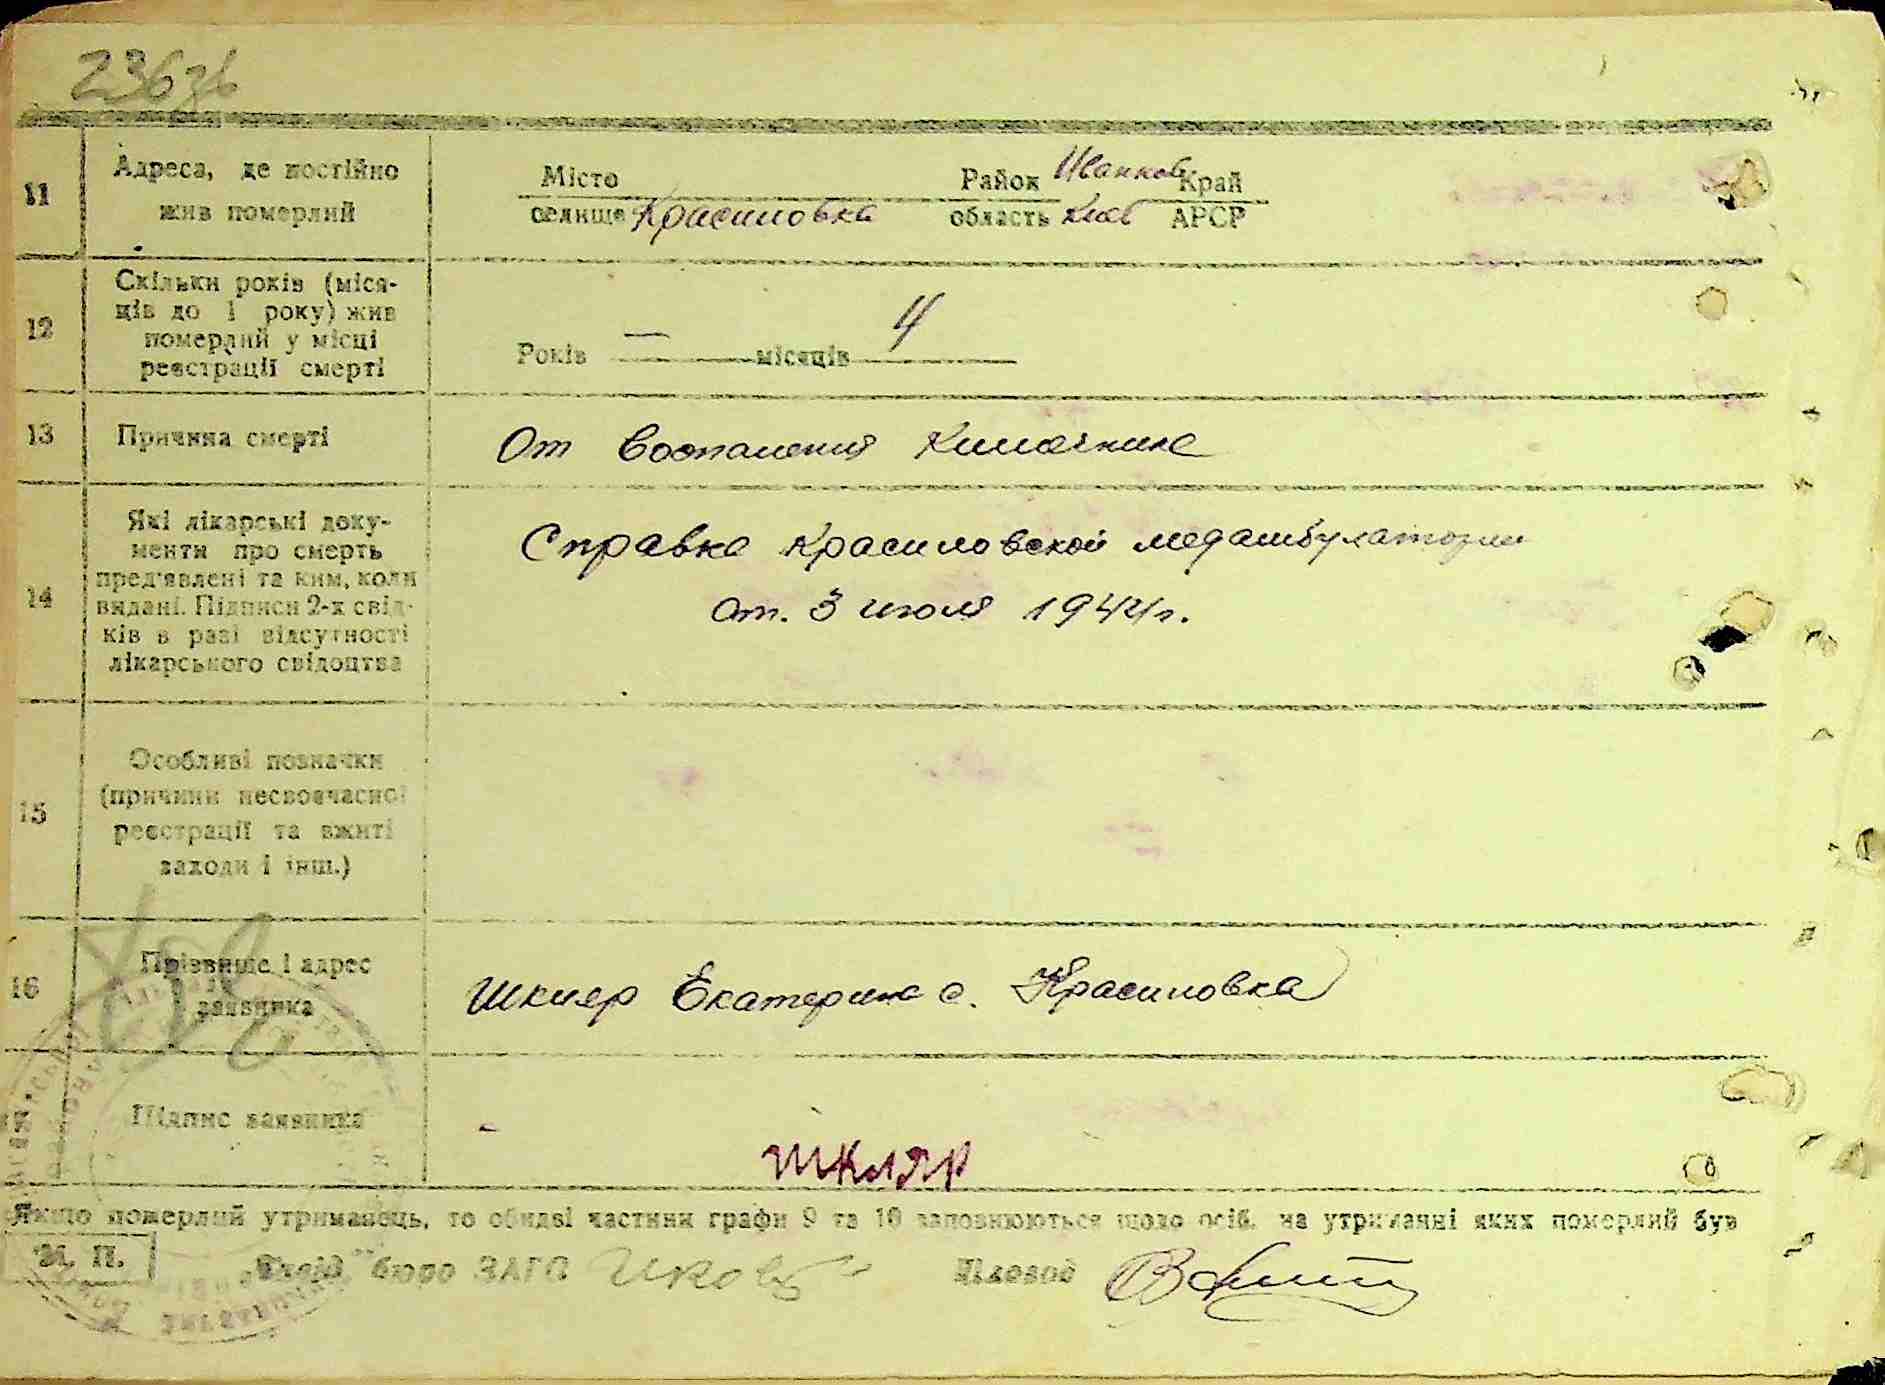 236зв
11
Адреса, де постійно
жив померлий
Місто
селище Красиловка
Район Иванков Край
область Киев АРСР
12
Скільки років (міся-
ців до 1 року) жив
померлий у місці
реєстрації смерті
Років — місяців 4
13
Причина смерті
От воспаления кишечника
14
Які лікарські доку-
менти про смерть
пред'явлені та ким, коли
видані. Підписи 2-х свід-
ків в разі відсутності
лікарського свідоцтва
Справка Красиловской медамбулатории
от. 3 июля 1944г.
15
Особливі позначки
(причини несвоєчасної
реєстрації та вжиті
заходи і інш.)
16
Прізвище і адрес
заявника
Шкляр Екатерина с. Красиловка
Підпис заявника
Шкляр
Якщо померлий утриманець, то обидві частини графи 9 та 10 заповнюються щодо осіб, на утриманні яких померлий був
М. П.
бюро ЗАГС
Діловод